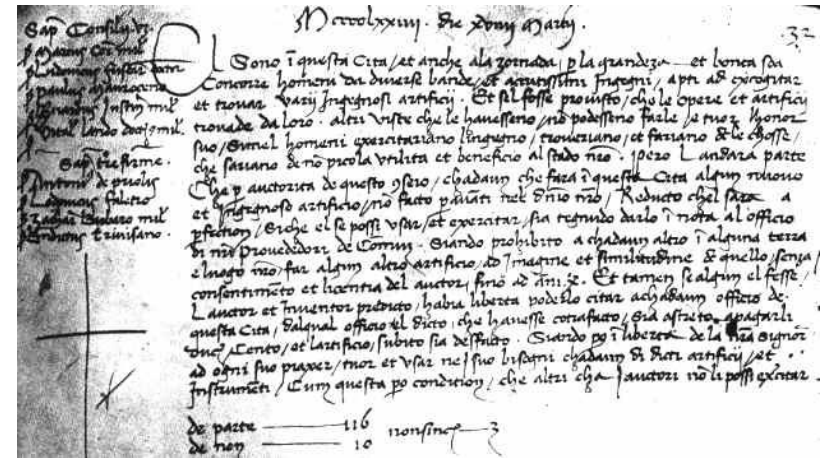 Mcccclxxiiij. die xviiij Martij.
32
Sap. Consilij
Marcus Cor. mil.
paulus maurocen.
Vital lando doct. mil.
Sap. tre firme.
Antoni. de priolis
Lodouicus faletro
Zacari. barbaro mil.
Endicus trivisano.
El Sono ī questa Cita, et anche ala zornada, p la grandeza et bonta soa
Concorre homeni da diverse bande, et acutissimi Ingegni, apti ad excogitar
et trovar varij Ingegnosi artificij. Et sel fosse provisto, che le opere et artificij
trovade da loro altri viste che le havesseno, nō podesseno farle, e tuor l honor
suo, Simel homeni exercitariano lingegno, troveriano, et fariano de le chosse,
che sariano de nō picola utilita et beneficio al stado nrō. pero L andara parte
Che p auctorita de questo 9seio, chadaun che fara ī questa Cita algun nuovo
et Ingegnoso artificio, nō facto p avāti nel dnīo nrō, Reducto chel sara a
pfection, Siche el se possi usar, et exercitar, sia tegnudo darlo ī nota al officio
di nrī Provededori de Comun. Siando prohibito a chadaun altro ī alguna terra
e luogo nrō, far algun altro artificio, ad Imagine et similitudine de quello, senza
consentimēto et licentia del auctor, fino ad anni .x. Et tamen se algun el fesse,
L auctor et Inventor predicto, habia liberta poderlo citar a chadaun officio de
questa Cita, dal qual officio el dicto, che havesse cōtrafacto, sia astreto a pagarli
duc. Cento, et lartificio, subito sia desfacto. Siando po ī liberta de la nrā Signori.
ad ogni suo piaxer, tuor et usar nei suo bisogni chadaun di dicti artificij, et
Instrumēti, Cum questa po condition, che altri cha i auctori nō li possi exercitar
de parte 116
de non 10 nonsinc. 3